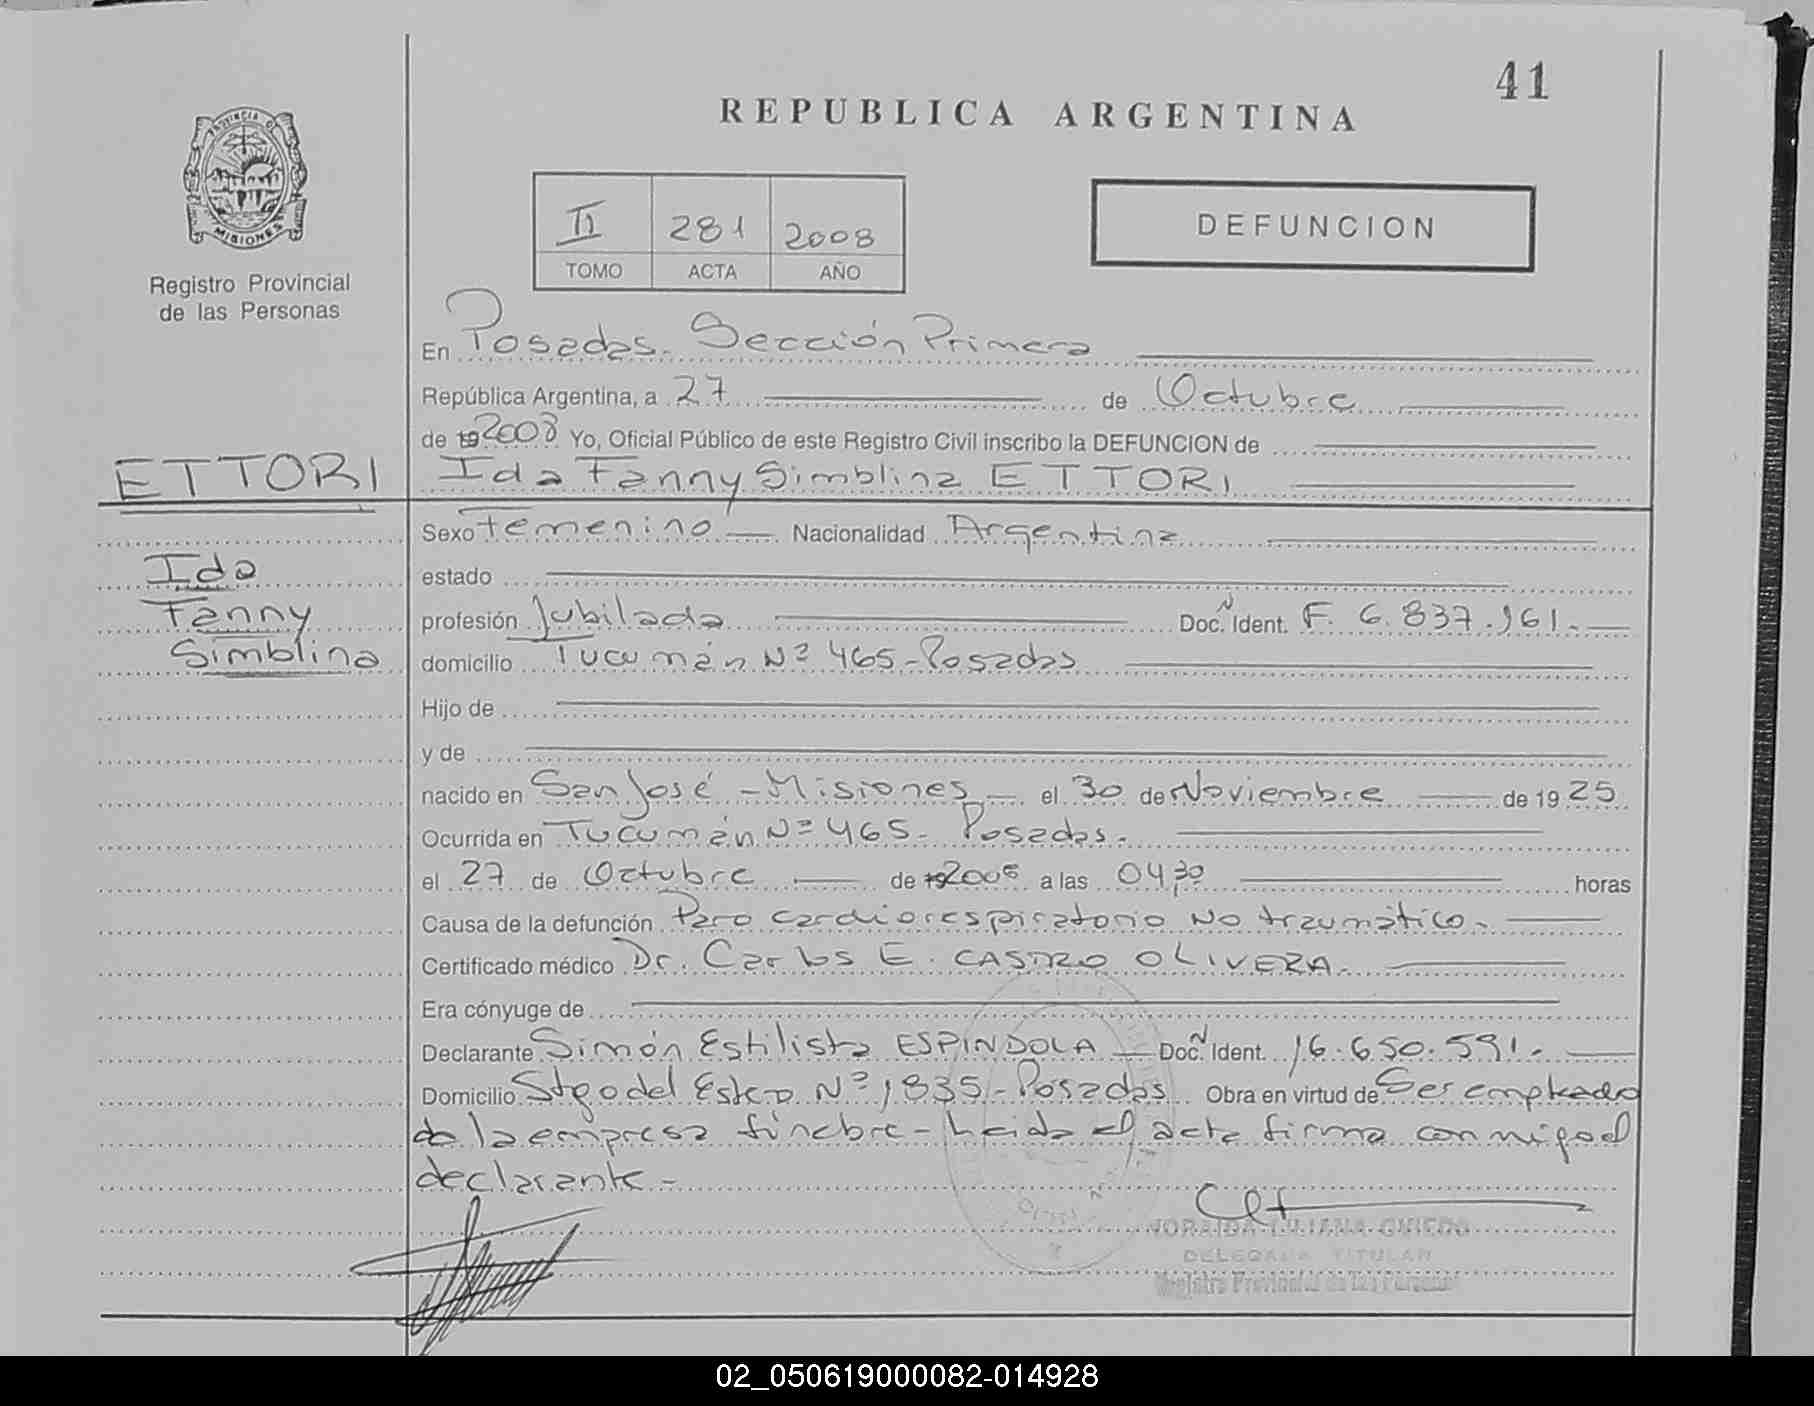 41
REPUBLICA ARGENTINA
PROVINCIA DE
MISIONES
Registro Provincial
de las Personas
II 281 2008
TOMO ACTA AÑO
DEFUNCION
En Posadas. Sección Primera
República Argentina, a 27 de Octubre
de 19 2008 Yo, Oficial Público de este Registro Civil inscribo la DEFUNCION de
ETTORI Ida Fanny Simblina ETTORI
Sexo Femenino Nacionalidad Argentina
Ida
estado
Fanny
profesión Jubilada Doc. N Ident. F. 6.837.161.
Simblina
domicilio Tucumán Nº 465-Posadas
Hijo de
y de
nacido en San José - Misiones el 30 de Noviembre de 19 25
Ocurrida en Tucumán Nº 465. Posadas.
el 27 de Octubre de 19 2008 a las 04,30 horas
Causa de la defunción Paro cardiorespiratorio No traumático.
Certificado médico Dr. Carlos E. CASTRO OLIVERA.
Era cónyuge de
Declarante Simón Estilista ESPINDOLA Doc. N Ident. 16.650.591.
Domicilio Stgo del Estero Nº 1835-Posadas Obra en virtud de Ser empleado
de la empresa fúnebre - Leida el acta firma conmigo el
declarante -
LILIANA OVIEDO
DELEGADA TITULAR
Registro Provincial de las Personas
02_050619000082-014928